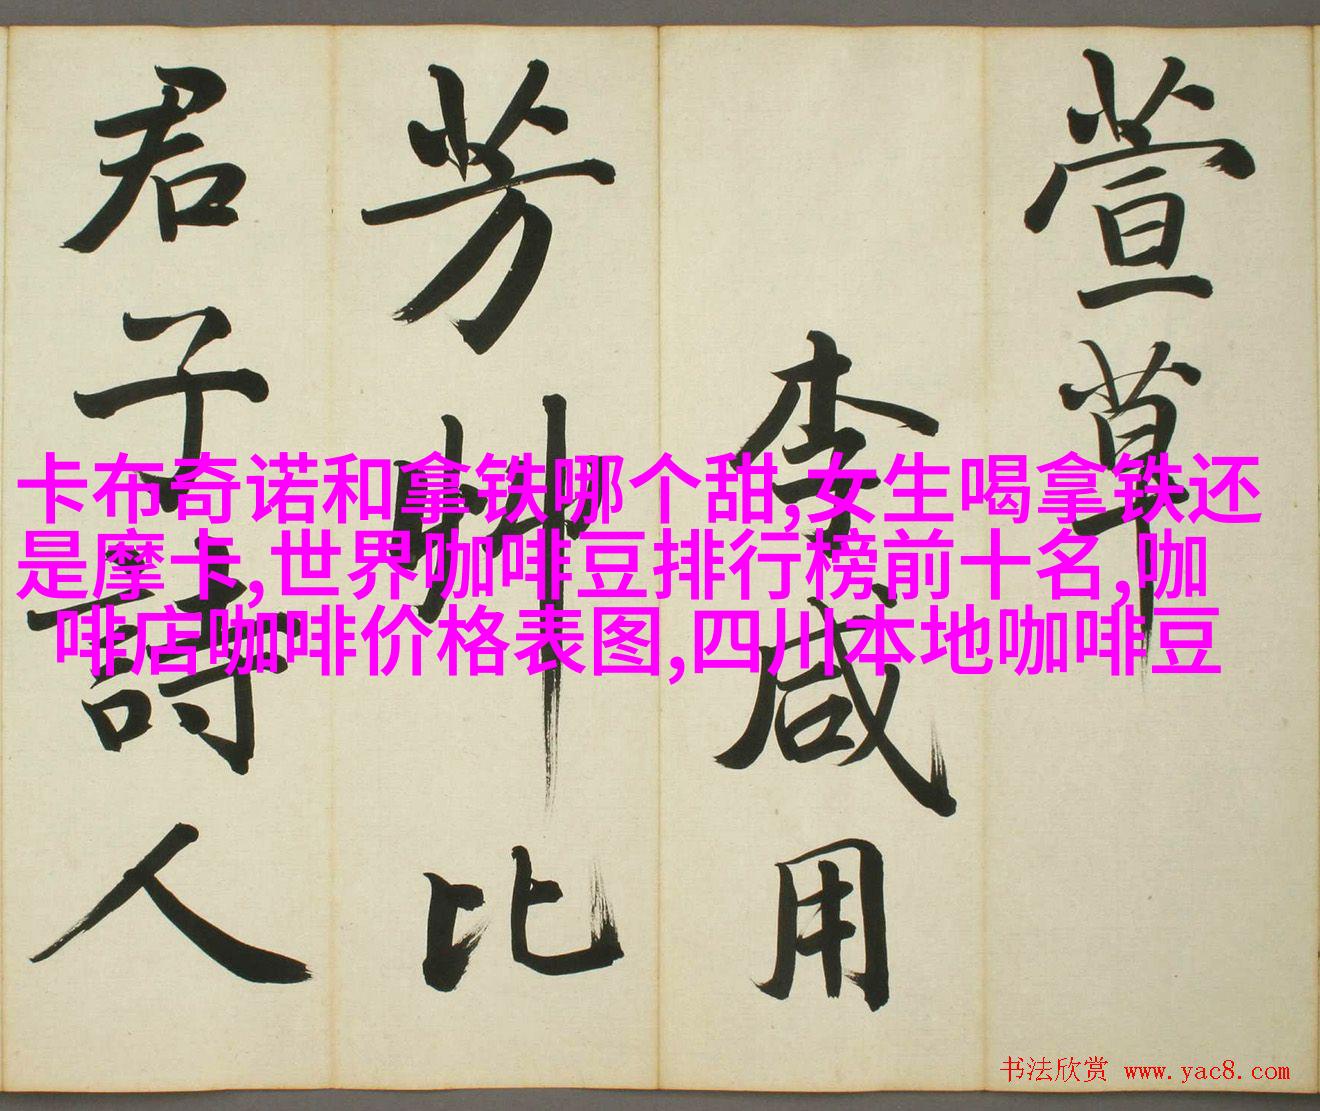 萱草
李咸用
芳艸比
君子詩人
卡布奇诺和拿铁哪个甜,女生喝拿铁还
是摩卡,世界咖啡豆排行榜前十名,咖
啡店咖啡价格表图,四川本地咖啡豆
书法欣赏 www.yac8.com